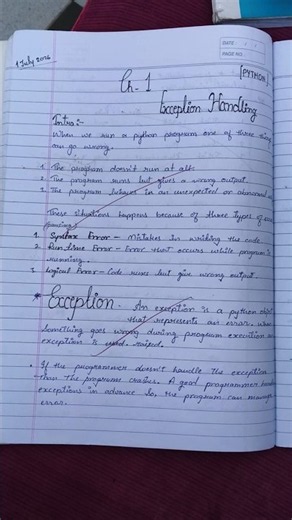 DATE
PAGE NO.
1 July 2026
[PYTHON]
Ch-1
Exception Handling
Intro:-
When we run a python program one of three thing
can go wrong.
1. The program doesn't run at all.
2. The program runs but gives a wrong output.
3. The program behaves in an unexpected or abnormal
These situations happens because of three types of
1. Syntax Error - Mistakes in writing the code
2. Run time Error - Error that occurs while program is
running.
3. Logical Error - Code runs but give wrong output.
* Exception. An exception is a python object
that represents an error. when
something goes wrong during program execution an
exception is used. raised.
• If the programmer doesn't handle the exception
then the programe crashes. A good programmer
exceptions in advance so, the program can manage
error.